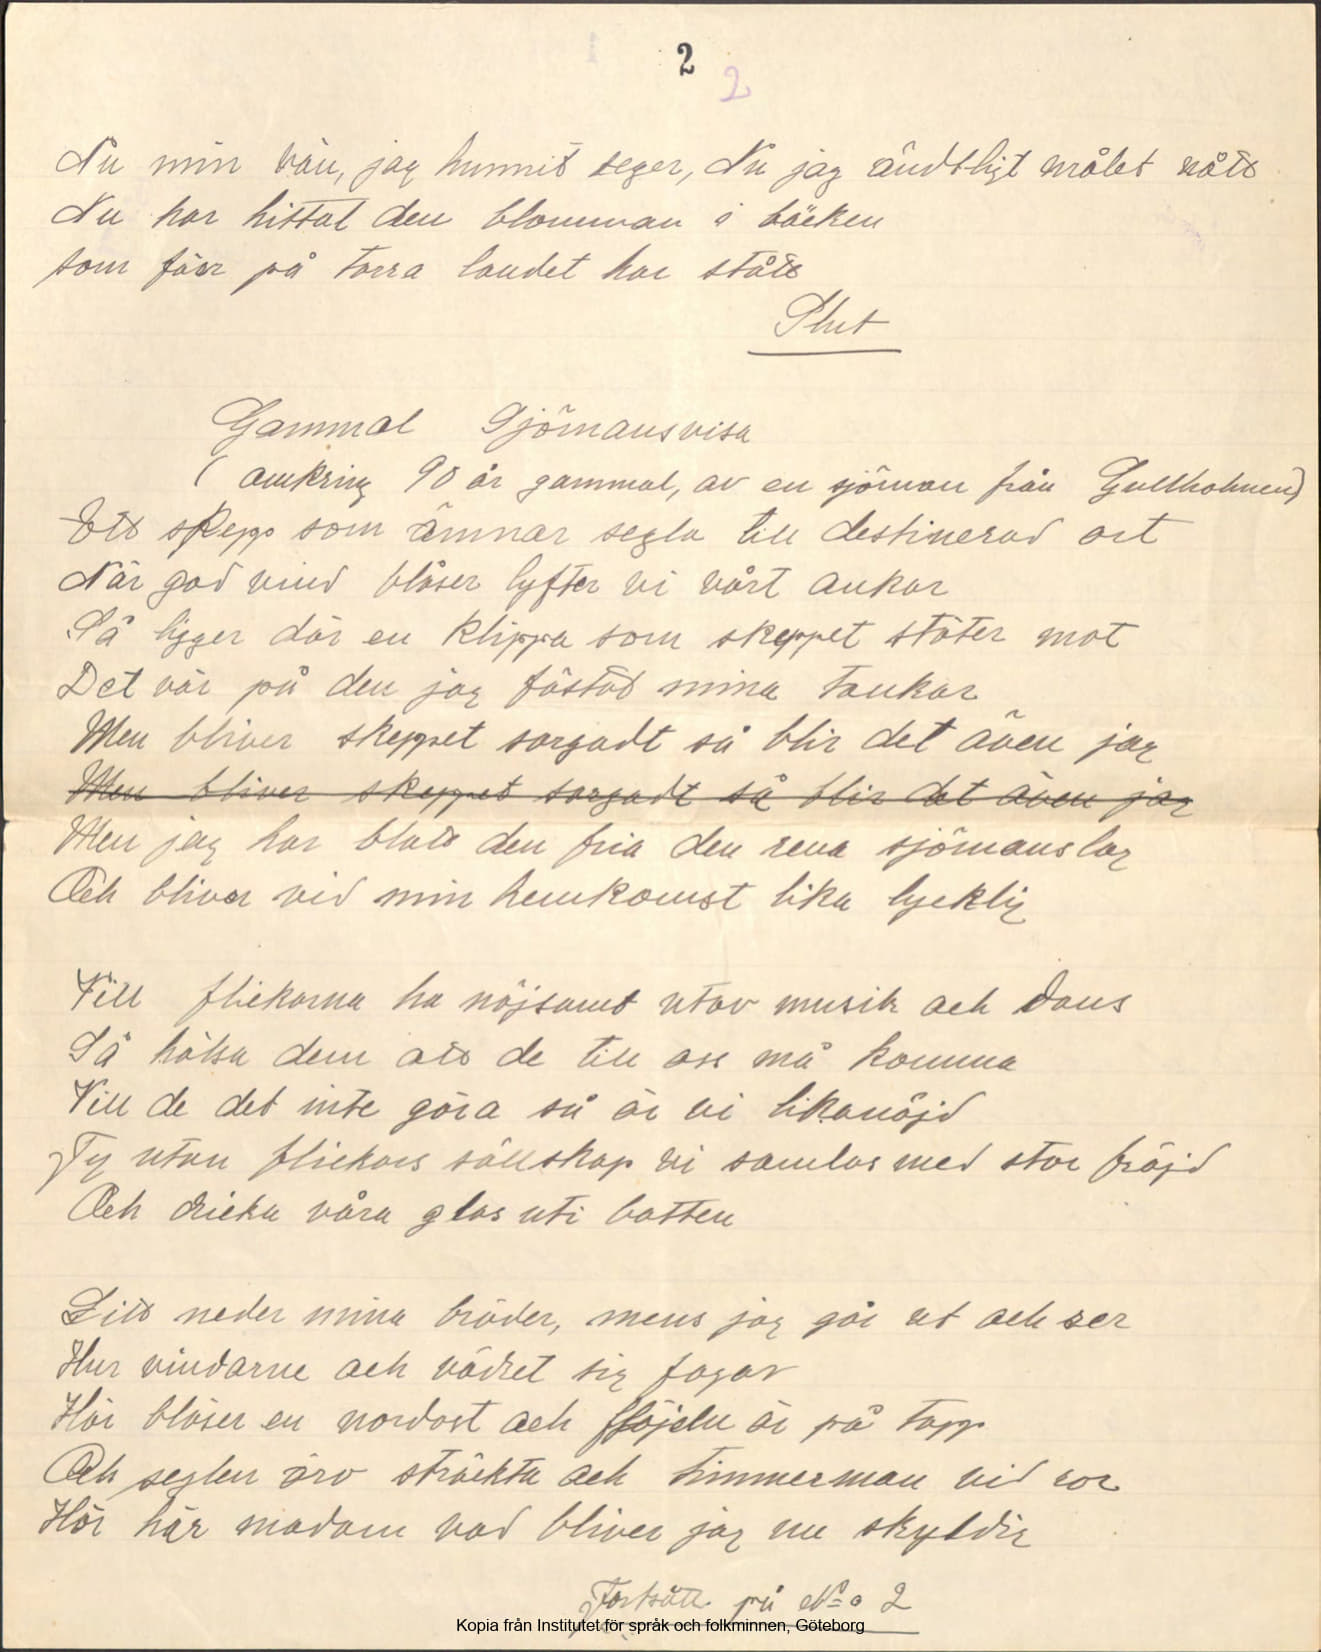 2
2
Nu min vän, jag hunnit seger, Nu jag ändtligt målet nått
Nu har hittat den blomman i bäcken
som förr på torra landet har stått
Slut
Gammal Sjömansvisa
(omkring 90 år gammal, av en sjöman från Gullholmen)
Ett skepp som ämnar segla till destinerad ort
När god vind blåser lyfter vi vårt ankar
Så ligger där en klippa som skeppet stöter mot
Det var på den jag fästad mina tankar
Men bliver skeppet sargadt så blir det även jag
Men bliver skeppet sargadt så blir det även jag
Men jag har blott den fria den rena sjömanslag
Och bliver vid min hemkomst lika lycklig
Vill flickorna ha nöjsamt utav musik och dans
Så hälsa dem att de till oss må komma
Vill de det inte göra så är vi likanöjd
Ty utan flickors sällskap vi samlas med stor fröjd
Och dricka våra glas uti botten
Sitt neder mina bröder, mens jag går ut och ser
Hur vindarne och vädret sig fogar
Här blåser en nordost och flöjeln är på topp
Och seglen äro sträckta och timmerman vid ror
Hör här madam vad bliver jag nu skyldig
Fortsätt. på No 2
Kopia från Institutet för språk och folkminnen, Göteborg